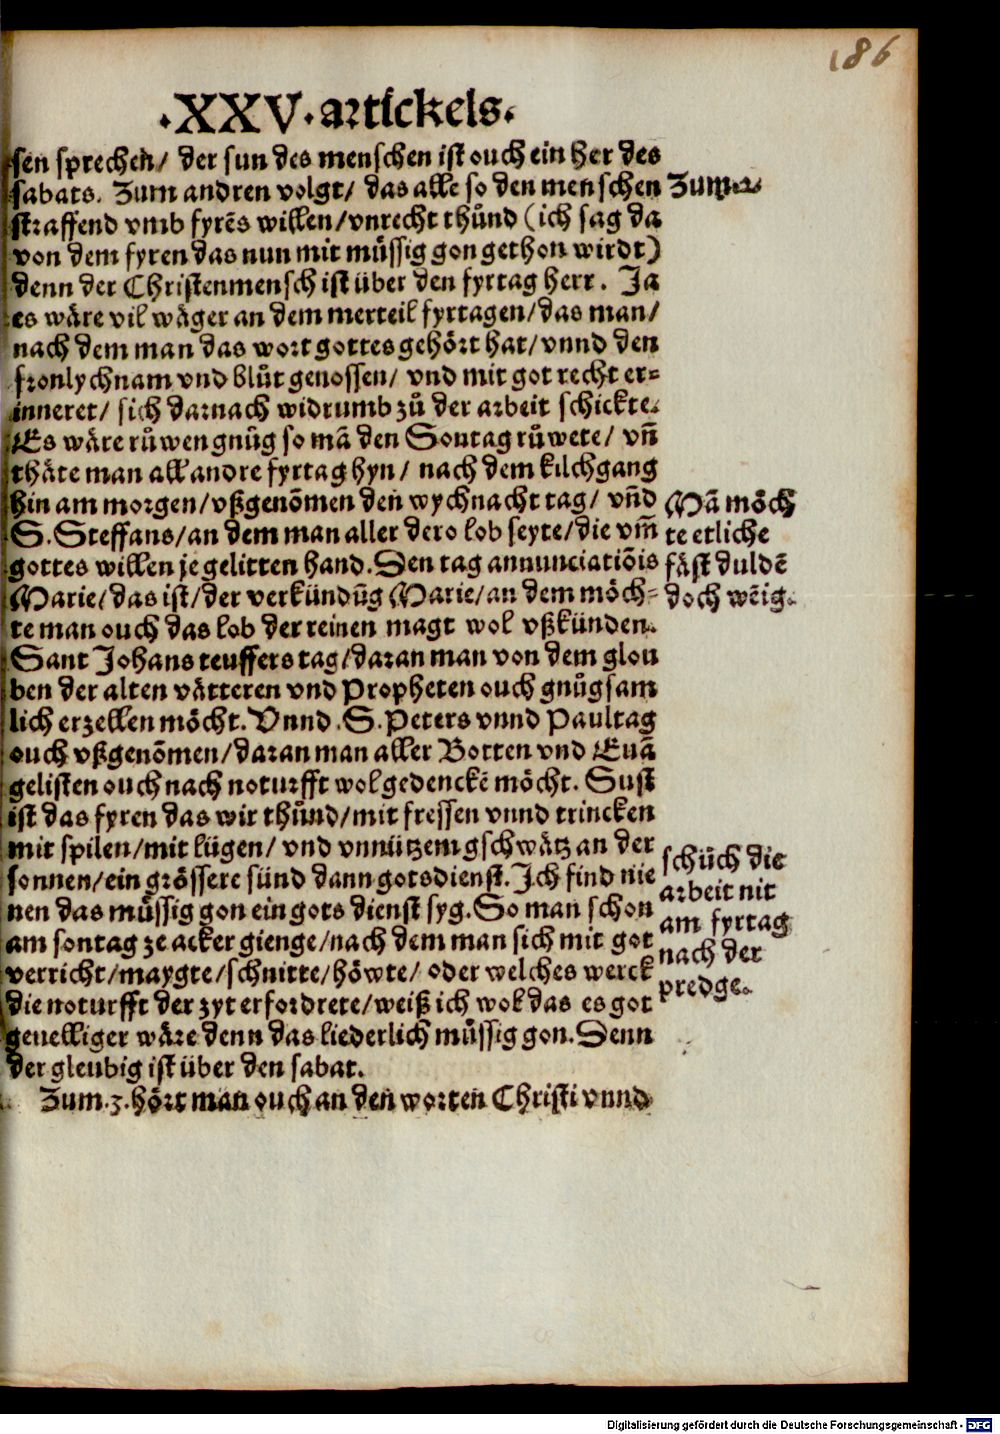 186
.XXV.artickels.
sen sprechen/ der sun des menschen ist ouch ein her des
sabats. Zum andren volgt/ das alle so den menschen
Zum .2.
straffend vmb fyrēs willen/vnrecht thůnd (ich sag da
von dem fyren das nun mit müssig gon gethon wirdt)
denn der Christenmensch ist über den fyrtag herr. Ja
es wäre vil wäger an dem merteil fyrtagen/das man/
nach dem man das wort gottes gehört hat/vnnd den
fronlychnam vnd blůt genossen/ vnd mit got recht er⸗
inneret/ sich darnach widrumb zů der arbeit schickte.
Es wäre růwen gnůg so mā den Sontag růwete/ vn̄
thäte man all andre fyrtag hyn/ nach dem kilchgang
hin am morgen/vßgenōmen den wychnacht tag/ vn̄d
S.Steffans/an dem man aller dero lob seyte/die vm̄
gottes willen je gelitten hand.Den tag annunciatiōis
Marie/das ist/der verkündūg Marie/an dem möch⸗
te man ouch das lob der reinen magt wol vßkünden.
Mā möch
te etliche
fäst duldē
doch wēig.
Sant Johans teuffers tag/daran man von dem glou
ben der alten vätteren vnd Propheten ouch gnůgsam
lich erzellen möcht.Vnnd .S.Peters vnnd Paultag
ouch vßgenōmen/daran man aller Botten vnd Euā
gelisten ouch nach noturfft wol gedenckē möcht. Sust
ist das fyren das wir thůnd/mit fressen vnnd trincken
mit spilen/mit lügen/ vnd vnnützem gschwätz an der
sonnen/ein grössere sünd dann gotsdienst.Ich find nie
nen das müssig gon ein gots dienst syg.So man schon
am sontag ze acker gienge/nach dem man sich mit got
verricht/maygte/schnitte/höwte/ oder welches werck
die noturfft der zyt erfordrete/weiß ich wol das es got
geuelliger wäre denn das liederlich müssig gon.Denn
der gleubig ist über den sabat.
schüch die
arbeit nit
am fyrtag
nach der
predge.
Zum.3.hört man ouch an den worten Christi vnnd
Digitalisierung gefördert durch die Deutsche Forschungsgemeinschaft - DFG